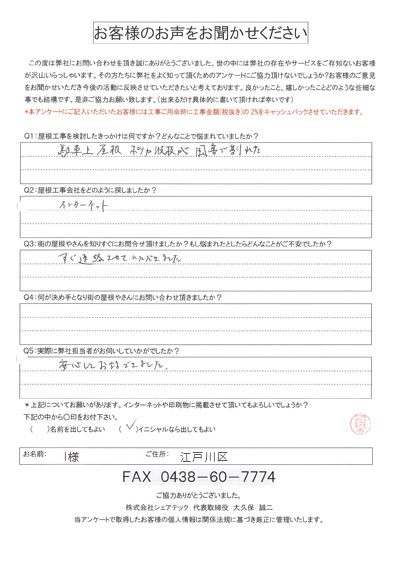 お客様のお声をお聞かせください
この度は弊社にお問い合わせを頂き誠にありがとうございました。世の中には弊社の存在やサービスをご存知ないお客様
が沢山いらっしゃいます。その方たちに弊社をよく知って頂くためのアンケートにご協力頂けないでしょうか?お客様のご意見
をお聞かせいただき今後の活動に反映させていただきたいと考えております。良かったこと、嬉しかったことどのような些細な
事でも結構です。是非ご協力お願い致します。(出来るだけ具体的に書いて頂ければ幸いです)
*本アンケートにご記入いただいたお客様には工事ご用命時に工事金額(税抜き)の 2%をキャッシュバックさせていただきます。
Q1:屋根工事を検討したきっかけは何ですか?どんなことで悩まれていましたか?
駐車上 屋根 ポリカ波板が 国番で割れた
Q2:屋根工事会社をどのように探しましたか?
インターネット
Q3:街の屋根やさんを知りすぐにお問合せ頂けましたか?もし悩まれたとしたらどんなことがご不安でしたか?
すぐ連絡させていただきました
Q4:何が決め手となり街の屋根やさんにお問い合わせ頂きましたか?
Q5:実際に弊社担当者がお伺いしていかがでしたか?
安心して
ました.
*上記についてお願いがあります。インターネットや印刷物に掲載させて頂いてもよろしいでしょうか?
下記の中から○印をお付下さい。
( )名前を出してもよい (✓)イニシャルなら出してもよい
お名前: I様 ご住所: 江戸川区
FAX 0438-60-7774
ご協力ありがとうございました。
株式会社シェアテック 代表取締役 大久保 誠二
当アンケートで取得したお客様の個人情報は関係法規に基づき厳正に管理いたします。